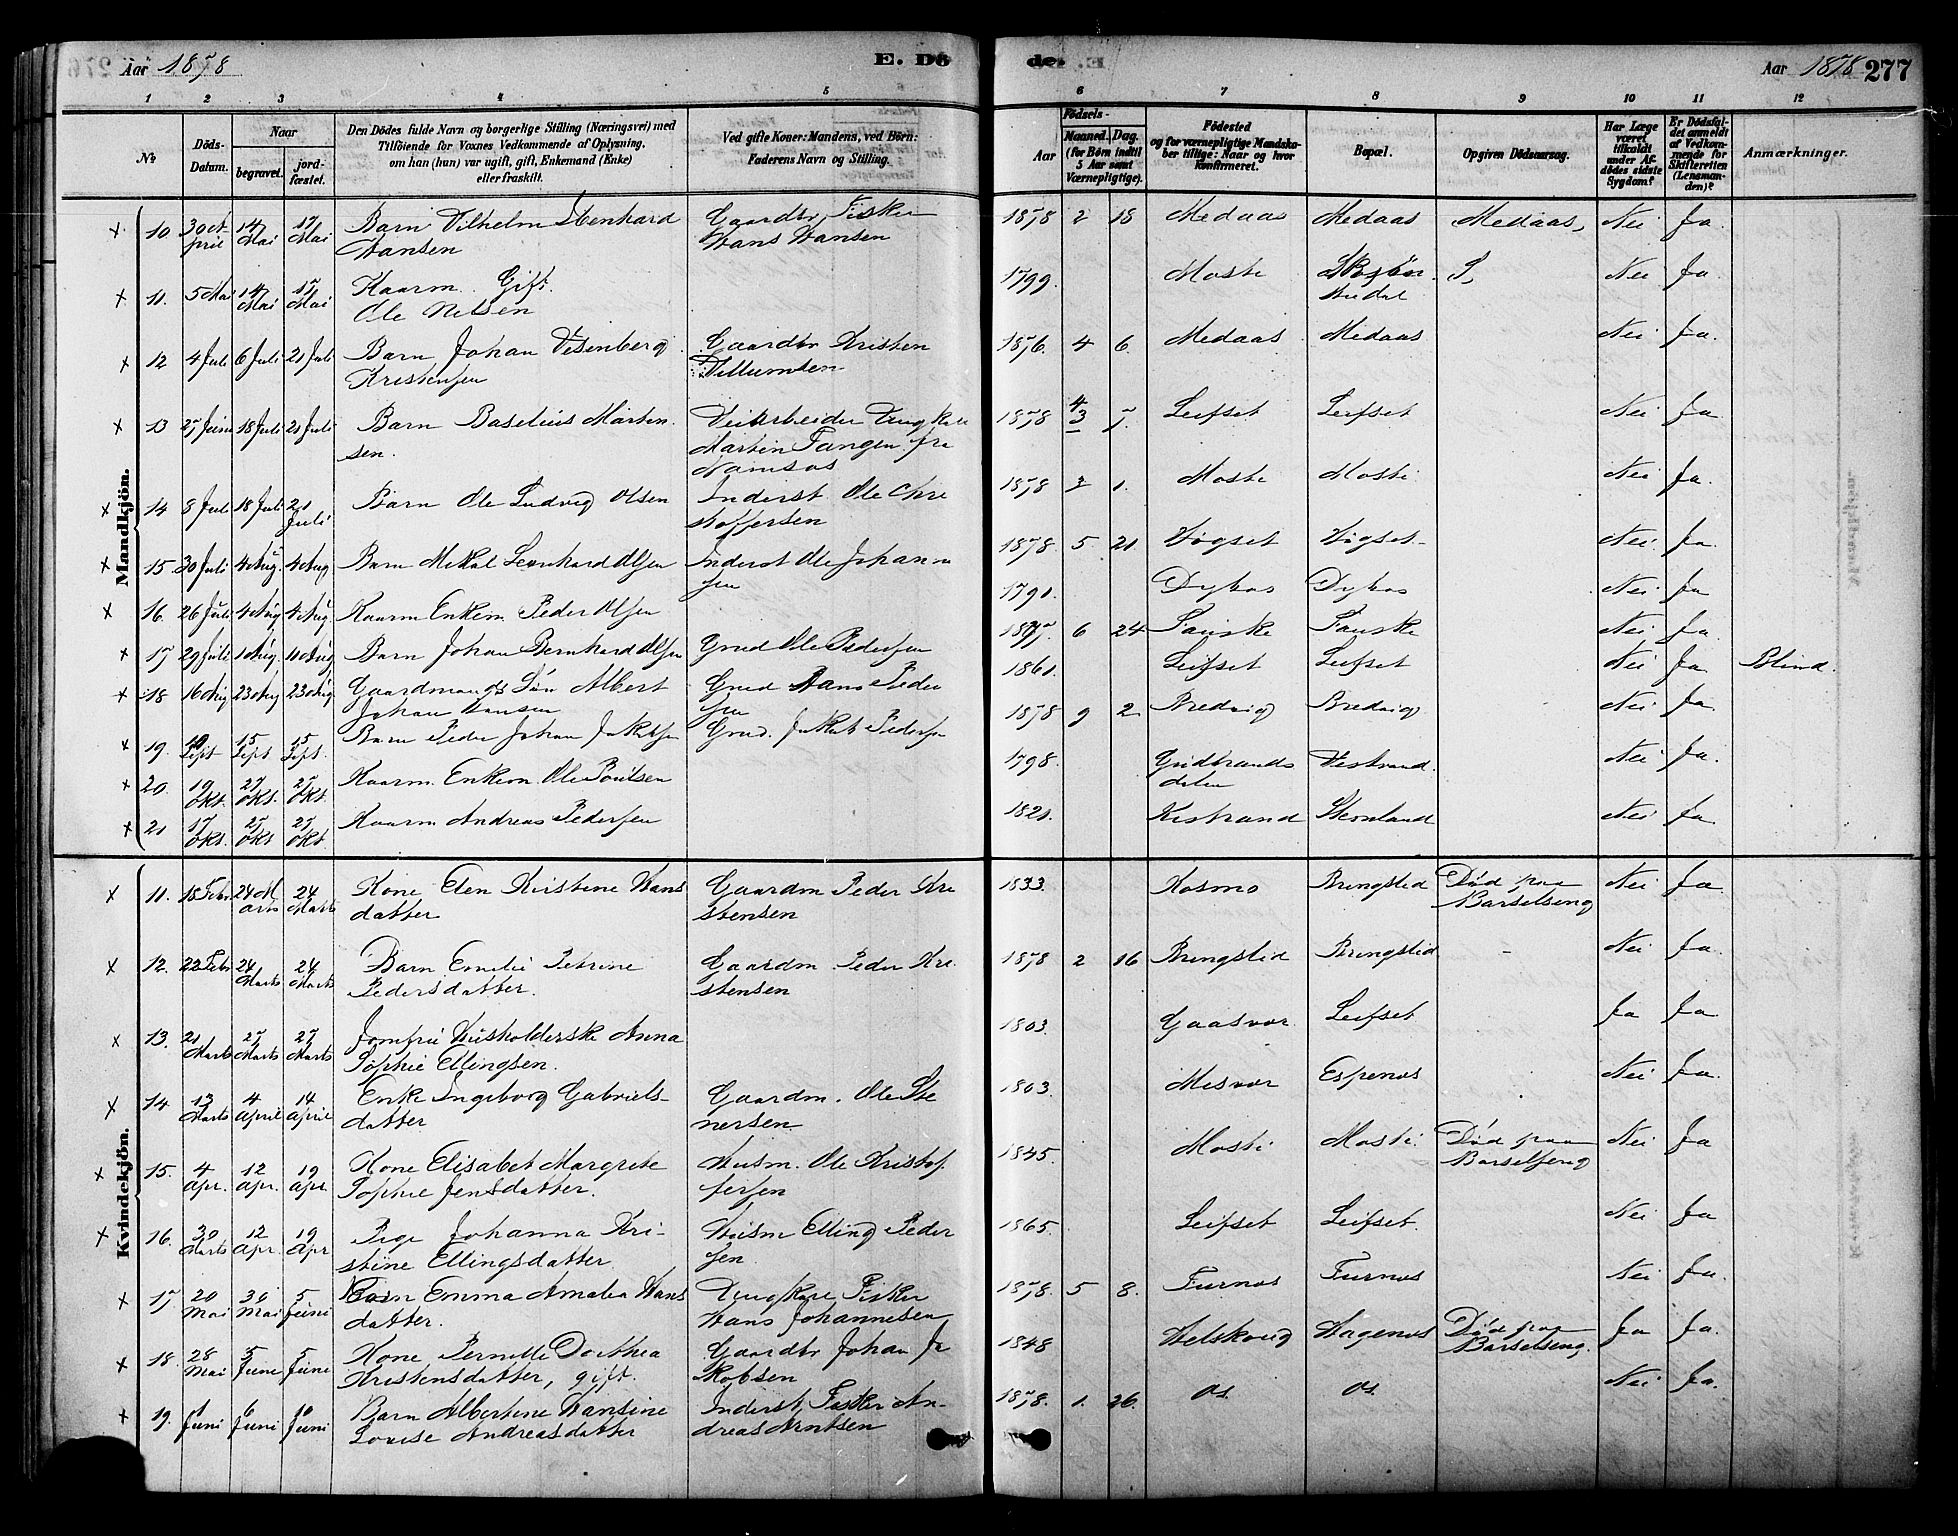 276
Aar 1878
E. Dö
de.
Aar 1878
277
1 2 3 4 5 6 7 8 9 10 11 12
No
Döds-
Datum.
Naar
begravet.
jord-
fæstet.
Den Dödes fulde Navn og borgerlige Stilling (Næringsvei) med
Tilföiende for Voxnes Vedkommende af Oplysning,
om han (hun) var ugift, gift, Enkemand (Enke)
eller fraskilt.
Ved gifte Koner: Mandens, ved Börn:
Faderens Navn og Stilling.
Födsels-
Aar
Maaned. Dag.
(for Börn indtil
5 Aar samt
Værnepligtige).
Födested
og for værnepligtige Mandska-
ber tillige: Naar og hvor
Konfirmeret.
Bopæl.
Opgiven Dödsaarsag.
Har Læge
været
tilkaldt
under Af-
dödes sidste
Sygdom?
Er Dödsfal-
det anmeldt
af Vedkom-
mende for
Skifteretten
(Lensman-
den)?
Anmærkninger.
Mandkjön.
10. 30 April 14 Mai 17 Mai Barn Vilhelm Ebenhard Hansen Gaardbr Fisker Hans Hansen 1878 2 18 Medaas Medaas Medaas, Nei Ja
11. 5 Mai 14 Mai 17 Mai Kaarm. Gift. Ole Nelsen 1799. Moste Nei Ja
12 4 Juli 6 Juli 21 Juli Barn Johan Vesenberg Kristensen Gaardbr Kristen Villumsen 1876. 4 6. Medaas Medaas Nei Ja.
13 27 Juni 18 Juli 21 Juli Barn Baselius Marten- sen. Veiarbeider Ungkarl Martin Tangen fra Namsos 1878 4 3 7. Leifset Leifset Nei Ja
14 8 Juli 18 Juli 21 Juli Barn Ole Ludvig Olsen Inderst Ole Chri stoffersen 1878 3 1. Moste Moste Nei Ja.
15 30 Juli 4 Aug. 4 Aug Barn Mikal Leonhard Olsen Inderst Ole Johann sen 1878. 5 21 Vogset Vogset Nei Ja.
16. 26 Juli 4 Aug. 4 Aug. Kaarm Enkem Peder Olsen 1791. Dybos Dybos Nei Ja
17 29 Juli 11 Aug. 11 Aug Barn Johan Bernhard Olsen Grud Ole Pedersen 1877. 6 24 Fauske Fauske Nei Ja.
18 16 Aug 23 Aug 23 Aug Gaardmands Søn Albert Johan Hansen Grud Hans Peder sen 1861. Leifset Leifset Nei Ja Blind.
19. 10 Sept 15 Sept 15 Sept. Barn Peder Johan Jakobsen Grud. Jakob Pedersen 1878 9 2 Bredvig Bredvig Nei Ja.
20. 19 Okt. 27 Okt. 27 Okt. Kaarm. Enkem Ole Poulsen 1798. Gudbrands dalen Vestvand. Nei Ja.
21 17 Okt. 27 Okt 27 Okt. Kaarm Andreas Pedersen 1821. Kistrand Skonland Nei Ja.
Kvindekjön.
11. 18 Febr 24 Marts 24 Marts Kone Elen Kirstine Hans datter Gaardm Peder Kri stensen 1833. Kosmo Bringslid Død paa Barselseng Nei Ja
12. 22 Febr 24 Marts 24 Marts Barn Emelie Petrine Pedersdatter. Gaardm Peder Kri stensen 1878 2 16 Bringslid Bringslid - Nei Ja.
13. 21 Marts 27 Marts 27 Marts Jomfru Husholderske Anna Sophie Ellingsen. 1803. Gaasvær. Leifset Ja Ja
14 13 Marts 4 April 14 April Enke Ingeborg Gabriels- datter Gaardm. Ole Ste nersen 1803 Misvær Espenes Nei Ja.
15. 4 Apr. 12 Apr. 19 Apr Kone Elisabet Margrete Sophie Jensdatter. Husm. Ole Kristof fersen 1845. Moste Moste Død paa Barselseng Nei Ja
16. 30 Marts 12 Apr 19 Apr Pige Johanna Kri- stine Ellingsdatter. Husm Elling Peder sen 1865 Leifset Leifset. Nei Ja
17 20 Mai 30 Mai 5 Juni Barn Emma Amalia Hans datter. Ungkarl Fisker Hans Johannesen 1878. 5 8. Furnes Furnes Nei Ja.
18. 28 Mai 5 Juni 5 Juni Kone Pernille Dorthea Kristensdatter, gift. Gaardbr Johan Ja kobsen 1848 Helskoug Hagenes Død paa Barselseng Ja Ja.
19. 1 Juni 6 Juni 10 Juni Barn Albertine Hansine Louise Andreasdatter Inderst, Fisker An- dreas Arntsen 1878. 1. 26. Os. Os. Nei Ja.